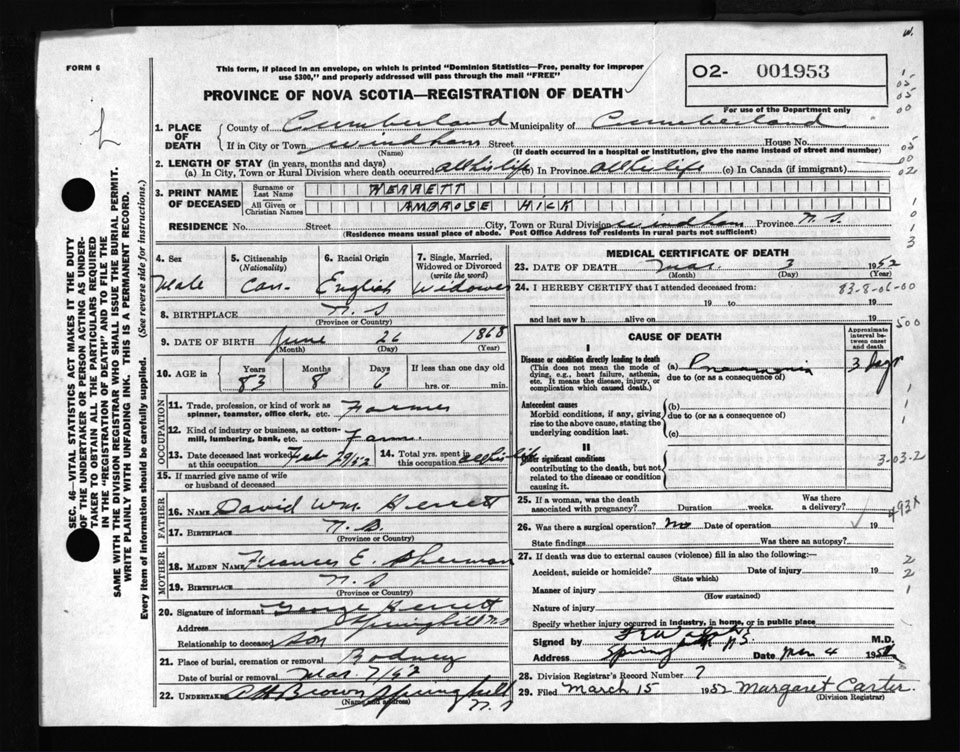 FORM 6
This form, if placed in an envelope, on which is printed "Dominion Statistics—Free, penalty for improper
use $300," and properly addressed will pass through the mail "FREE"
PROVINCE OF NOVA SCOTIA—REGISTRATION OF DEATH
O2- 001953
For use of the Department only
1. PLACE OF DEATH County of Cumberland Municipality of Cumberland
If in City or Town Windham Street House No.
(Name) (If death occurred in a hospital or institution, give the name instead of street and number)
2. LENGTH OF STAY (in years, months and days)
(a) In City, Town or Rural Division where death occurred all his life (b) In Province all his life (c) In Canada (if immigrant)
3. PRINT NAME OF DECEASED Surname or Last Name HERRETT
All Given or Christian Names AMBROSE HICK
RESIDENCE No. Street City, Town or Rural Division Windham Province N. S.
(Residence means usual place of abode. Post Office Address for residents in rural parts not sufficient)
4. Sex Male
5. Citizenship (Nationality) Can.
6. Racial Origin English
7. Single, Married, Widowed or Divorced (write the word) Widower
8. BIRTHPLACE N. S
(Province or Country)
9. DATE OF BIRTH June 26 1868
(Month) (Day) (Year)
10. AGE in Years 83 Months 8 Days 6 If less than one day old
hrs. or min.
OCCUPATION
11. Trade, profession, or kind of work as spinner, teamster, office clerk, etc. Farmer
12. Kind of industry or business, as cotton-mill, lumbering, bank, etc. Farm.
13. Date deceased last worked at this occupation Feb 29/52
14. Total yrs. spent in this occupation all his life
15. If married give name of wife or husband of deceased
FATHER
16. NAME David Wm. Herrett
17. BIRTHPLACE N. S.
(Province or Country)
MOTHER
18. MAIDEN NAME Frances E. Sherman
19. BIRTHPLACE N. S
(Province or Country)
20. Signature of informant George Herrett
Address Springhill N.S
Relationship to deceased son
21. Place of burial, cremation or removal Rodney
Date of burial or removal Mar. 7/52
22. UNDERTAKER Brown Springhill
(Name and address) N. S
MEDICAL CERTIFICATE OF DEATH
23. DATE OF DEATH Mar. 3 1952
(Month) (Day) (Year)
24. I HEREBY CERTIFY that I attended deceased from: 83-8-06-00
19 to 19
and last saw h alive on 19
CAUSE OF DEATH
Approximate interval between onset and death
I
Disease or condition directly leading to death (a) Pneumonia 3 days
(This does not mean the mode of dying, e.g., heart failure, asthenia, etc. It means the disease, injury, or complication which caused death.) due to (or as a consequence of)
Antecedent causes (b)
Morbid conditions, if any, giving rise to the above cause, stating the underlying condition last. due to (or as a consequence of)
(c)
II
Other significant conditions
contributing to the death, but not related to the disease or condition causing it.
3-03-2
25. If a woman, was the death associated with pregnancy? Duration weeks. Was there a delivery?
493X
26. Was there a surgical operation? no Date of operation 19
State findings Was there an autopsy?
27. If death was due to external causes (violence) fill in also the following:—
Accident, suicide or homicide? Date of injury 19
(State which)
Manner of injury
(How sustained)
Nature of injury
Specify whether injury occurred in industry, in home, or in public place
Signed by M.D.
Address Springhill N.S. Date Mar 4 19
28. Division Registrar's Record Number 7
29. Filed March 15 1952 Margaret Carter.
(Division Registrar)
SEC. 46—VITAL STATISTICS ACT MAKES IT THE DUTY
OF THE UNDERTAKER OR PERSON ACTING AS UNDER-
TAKER TO OBTAIN ALL THE PARTICULARS REQUIRED
IN THE "REGISTRATION OF DEATH" AND TO FILE THE
SAME WITH THE DIVISION REGISTRAR WHO SHALL ISSUE THE BURIAL PERMIT.
WRITE PLAINLY WITH UNFADING INK. THIS IS A PERMANENT RECORD.
Every item of information should be carefully supplied. (See reverse side for instructions.)